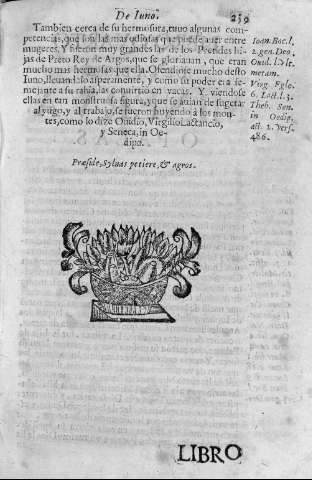 De Iuno. 239
Tambien cerca de su hermosura, tuuo algunas com-
petencias, que son las mas odiosas que puede auer entre
mugeres. Y fueron muy grandes las de los Pretides hi-
jas de Preto Rey de Argos, que se gloriauan, que eran
mucho mas hermosas que ella. Ofendiose mucho desto
Iuno, lleuandolo asperamente, y como su poder era se-
mejante a su rabia, las conuirtio en vacas. Y viendose
ellas en tan monstruosa figura, y que se auian de sugetar
al yugo, y al trabajo, se fueron huyendo à los mon-
tes, como lo dize Ouidio, Virgilio Lactancio,
y Seneca, in Oe-
dipo.
Ioan. Boc. l.
2. gen. Deo.
Ouid. l.
meram.
Virg. Egle.
6. Lact. l. 3.
Theb. Sen.
in Oedip.
act. 2. Vers.
486.
Præside, syluas petiere, & agros.
LIBRO